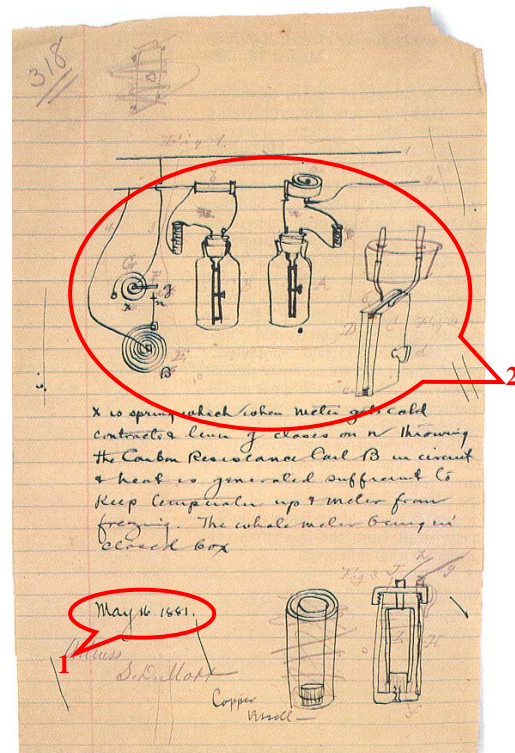 318
Fig 1
1
2
G
x
n
B
E
A
D
2
X is spring which when meter gets cold
contracts & lever g closes on n throwing
the Carbon Resistance Coil B in circuit
& heat is generated sufficient to
Keep temperature up & meter from
freezing. The whole meter being in
closed box
Fig 3
May 16 1881.
1
Witness
S. D. Mott
Copper
Vessel